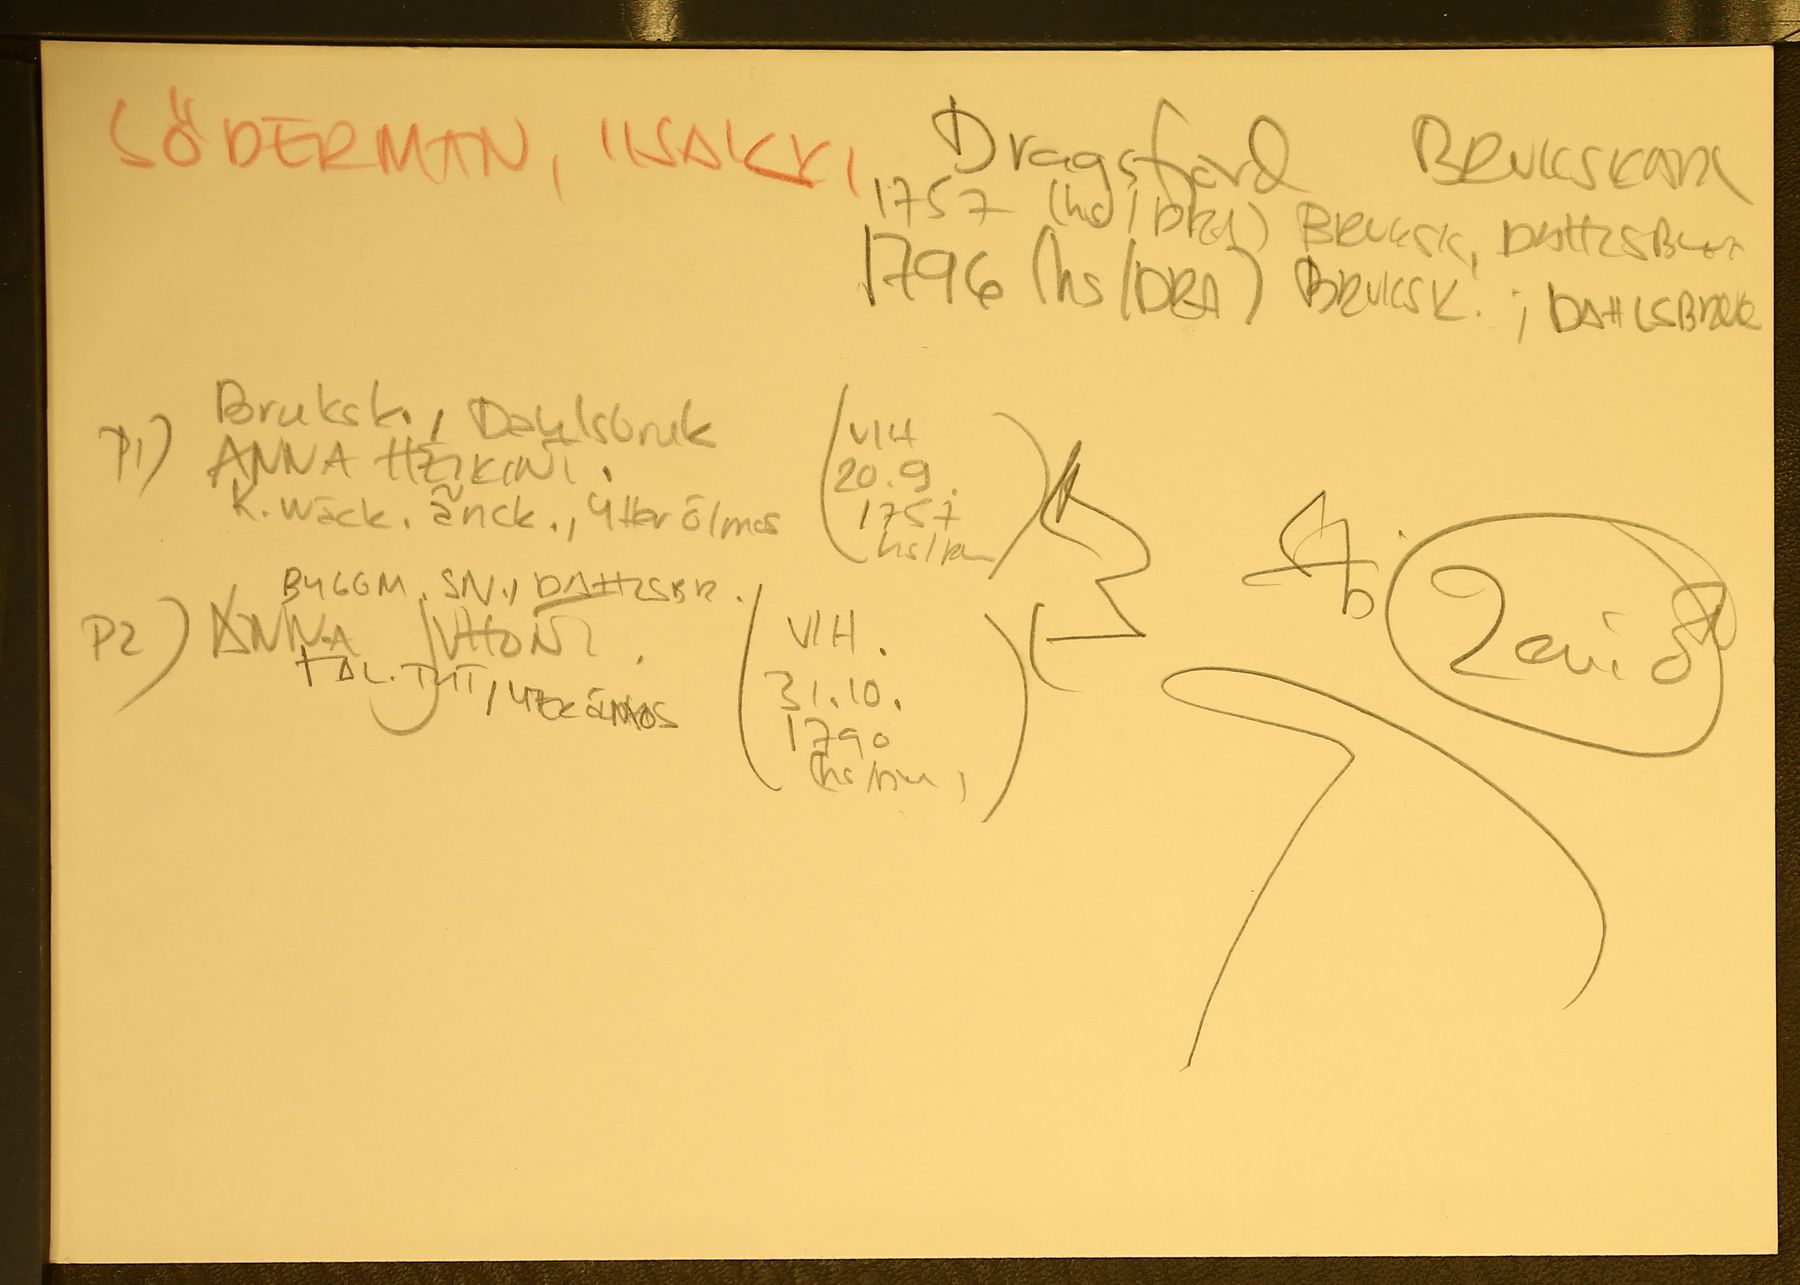 SÖDERMAN, IISAKKI, Dragsfjärd BRUKSKARL
1757 (hd/DRA) BRUKSK, DAHLSBRUK
1796 (hs/DRA) BRUKSK. ; DAHLSBRUK
Bruksk., Dahlsbruk
P1) ANNA HEIKINT.
K. wäck. änck., Ytterölmos
(VIH
20.9.
1757
hs/km)
BYGGM. SN., DAHLSBR.
P2) ANNA JUHONT.
TAL. TYT,
(VIH.
31.10.
1790